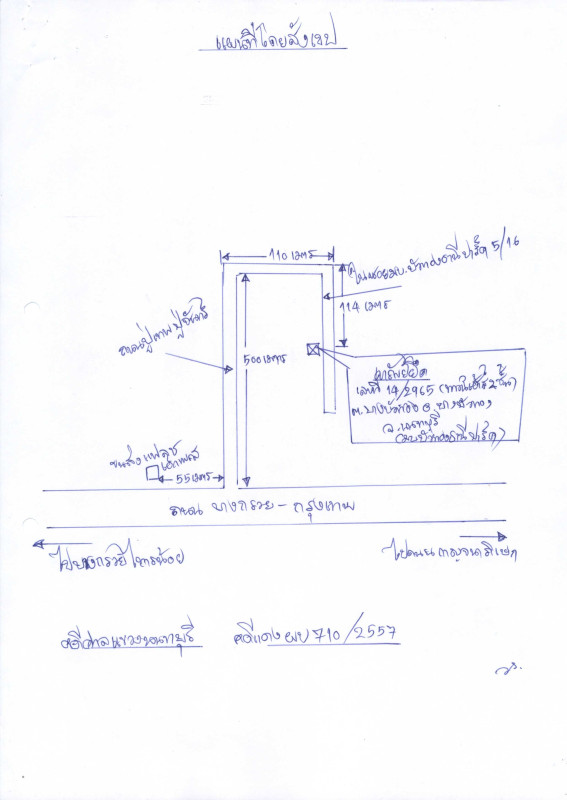 แผนที่โดยสังเขป
110 เมตร
ในซอย ม.บัวทองธานี ปาร์ค 5/16
114 เมตร
ถนนปู่เทพปู่จันทร์
500 เมตร
ทรัพย์ยึด
เลขที่ 14/2965 (ทาวน์เฮ้าส์ 2 ชั้น)
ต.บางบัวทอง อ.บางบัวทอง
จ.นนทบุรี
(ม.บัวทองธานี ปาร์ค)
ขนส่ง
55 เมตร
ถนน บางกรวย - กรุงเทพ
ไปบางกรวย ไทรน้อย
ไปถนนกาญจนาภิเษก
คดีศาลแขวงนนทบุรี คดีแดง ผบ 710/2557